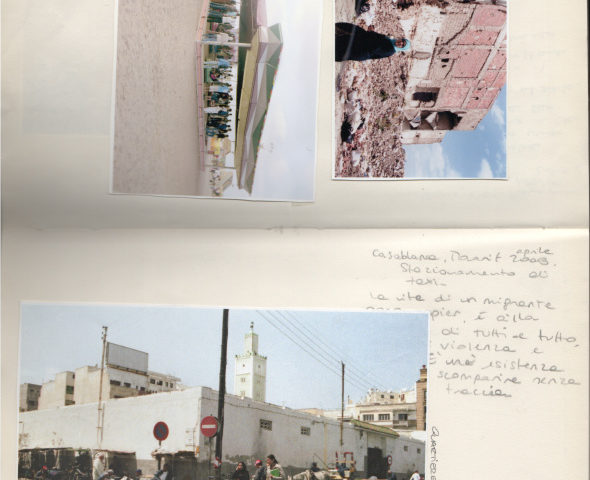 Casablanca, Marrif aprile 2003.
Stazionamento di
taxi.
La vita di un migrante
pier, è alla
di tutti e tutto,
violenza e
una esistenza
scomparire senza
traccia
Quartiere